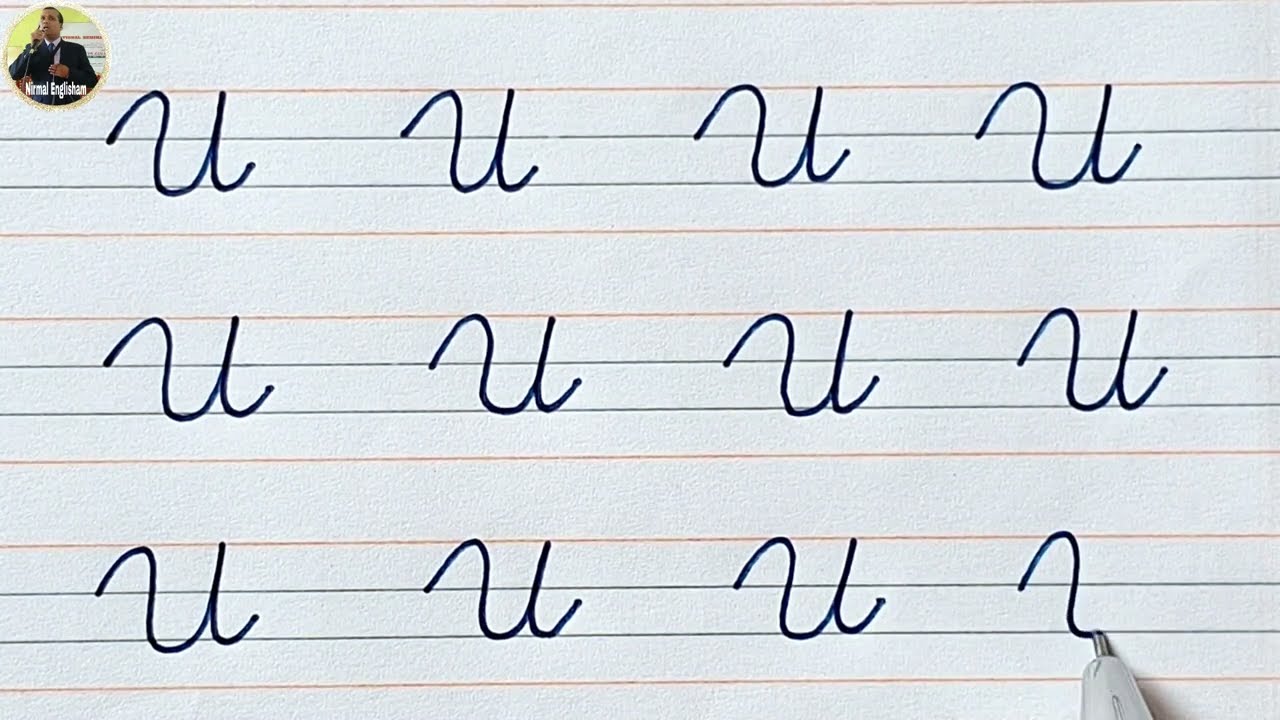 Nirmal Englisham
U U U U
U U U U
U U U